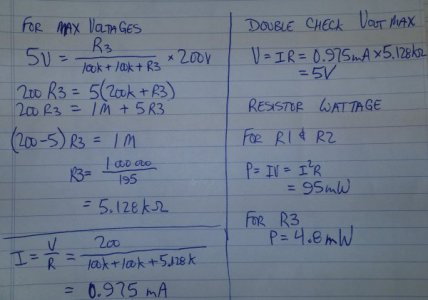 FOR MAX VOLTAGES
5V = R3 / 100k + 100k + R3 × 200V
200 R3 = 5(200k + R3)
200 R3 = 1M + 5R3
(200-5) R3 = 1M
R3 = 1000000 / 195
= 5.128kΩ
I = V / R = 200 / 100k + 100k + 5.128k
= 0.975 mA
DOUBLE CHECK VOUT MAX
V = IR = 0.975mA × 5.128kΩ
= 5V
RESISTOR WATTAGE
FOR R1 & R2
P = IV = I²R
= 95mW
FOR R3
P = 4.8mW